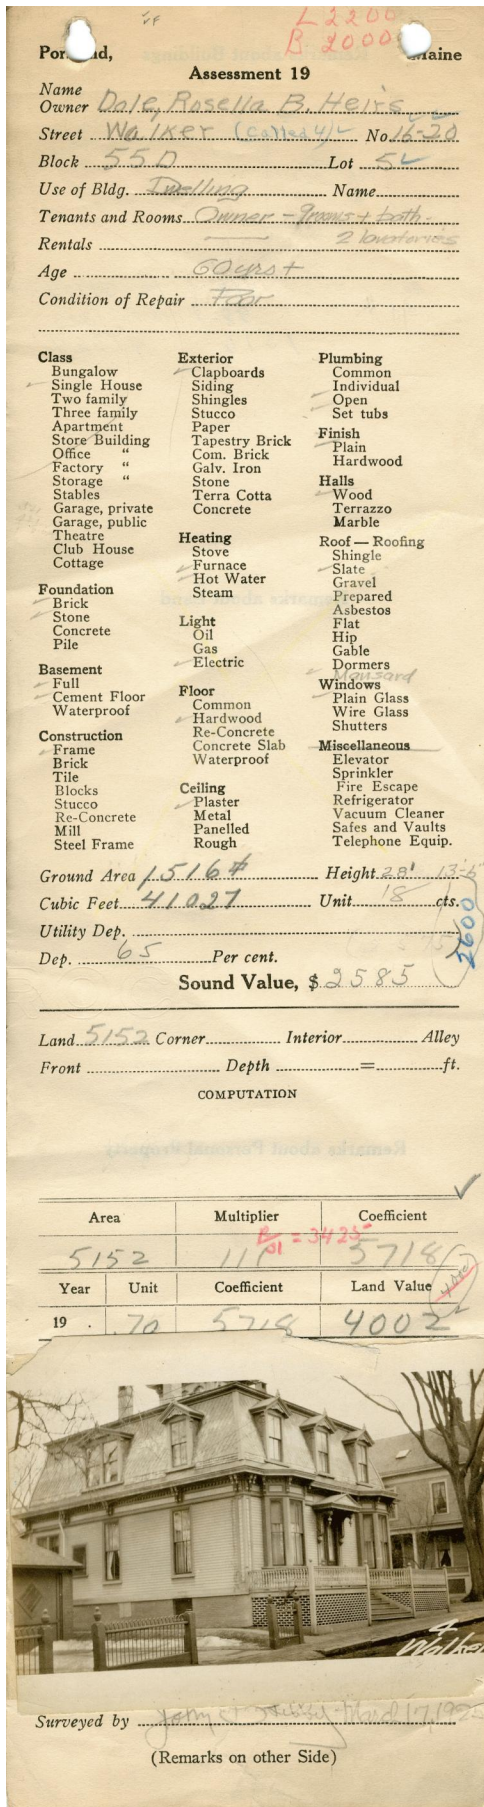 L 2200
B 2000
Portland, Maine
Assessment 19
Name
Owner Dole, Rosella B. Heirs
Street Walker (Called 4) No. 16-20
Block 55D Lot 5
Use of Bldg. Dwelling Name
Tenants and Rooms Owner - 9 rooms + bath
Rentals 2 lavatories
Age 60 yrs +
Condition of Repair Poor
Class
Bungalow
Single House
Two family
Three family
Apartment
Store Building
Office "
Factory "
Storage "
Stables
Garage, private
Garage, public
Theatre
Club House
Cottage
Foundation
Brick
Stone
Concrete
Pile
Basement
Full
Cement Floor
Waterproof
Construction
Frame
Brick
Tile
Blocks
Stucco
Re-Concrete
Mill
Steel Frame
Exterior
Clapboards
Siding
Shingles
Stucco
Paper
Tapestry Brick
Com. Brick
Galv. Iron
Stone
Terra Cotta
Concrete
Heating
Stove
Furnace
Hot Water
Steam
Light
Oil
Gas
Electric
Floor
Common
Hardwood
Re-Concrete
Concrete Slab
Waterproof
Ceiling
Plaster
Metal
Panelled
Rough
Plumbing
Common
Individual
Open
Set tubs
Finish
Plain
Hardwood
Halls
Wood
Terrazzo
Marble
Roof — Roofing
Shingle
Slate
Gravel
Prepared
Asbestos
Flat
Hip
Gable
Dormers
Mansard
Windows
Plain Glass
Wire Glass
Shutters
Miscellaneous
Elevator
Sprinkler
Fire Escape
Refrigerator
Vacuum Cleaner
Safes and Vaults
Telephone Equip.
Ground Area 1516# Height 28'
Cubic Feet 41027 Unit 18 cts.
Utility Dep.
2600
Dep. 65 Per cent.
Sound Value, $ 2585
Land 5152 Corner Interior Alley
Front Depth = ft.
COMPUTATION
Area Multiplier Coefficient
B/51 = 3425
5152 111 5718
Year Unit Coefficient Land Value
19 . .70 5718 4002
4
Walker
Surveyed by March 17, 192
(Remarks on other Side)